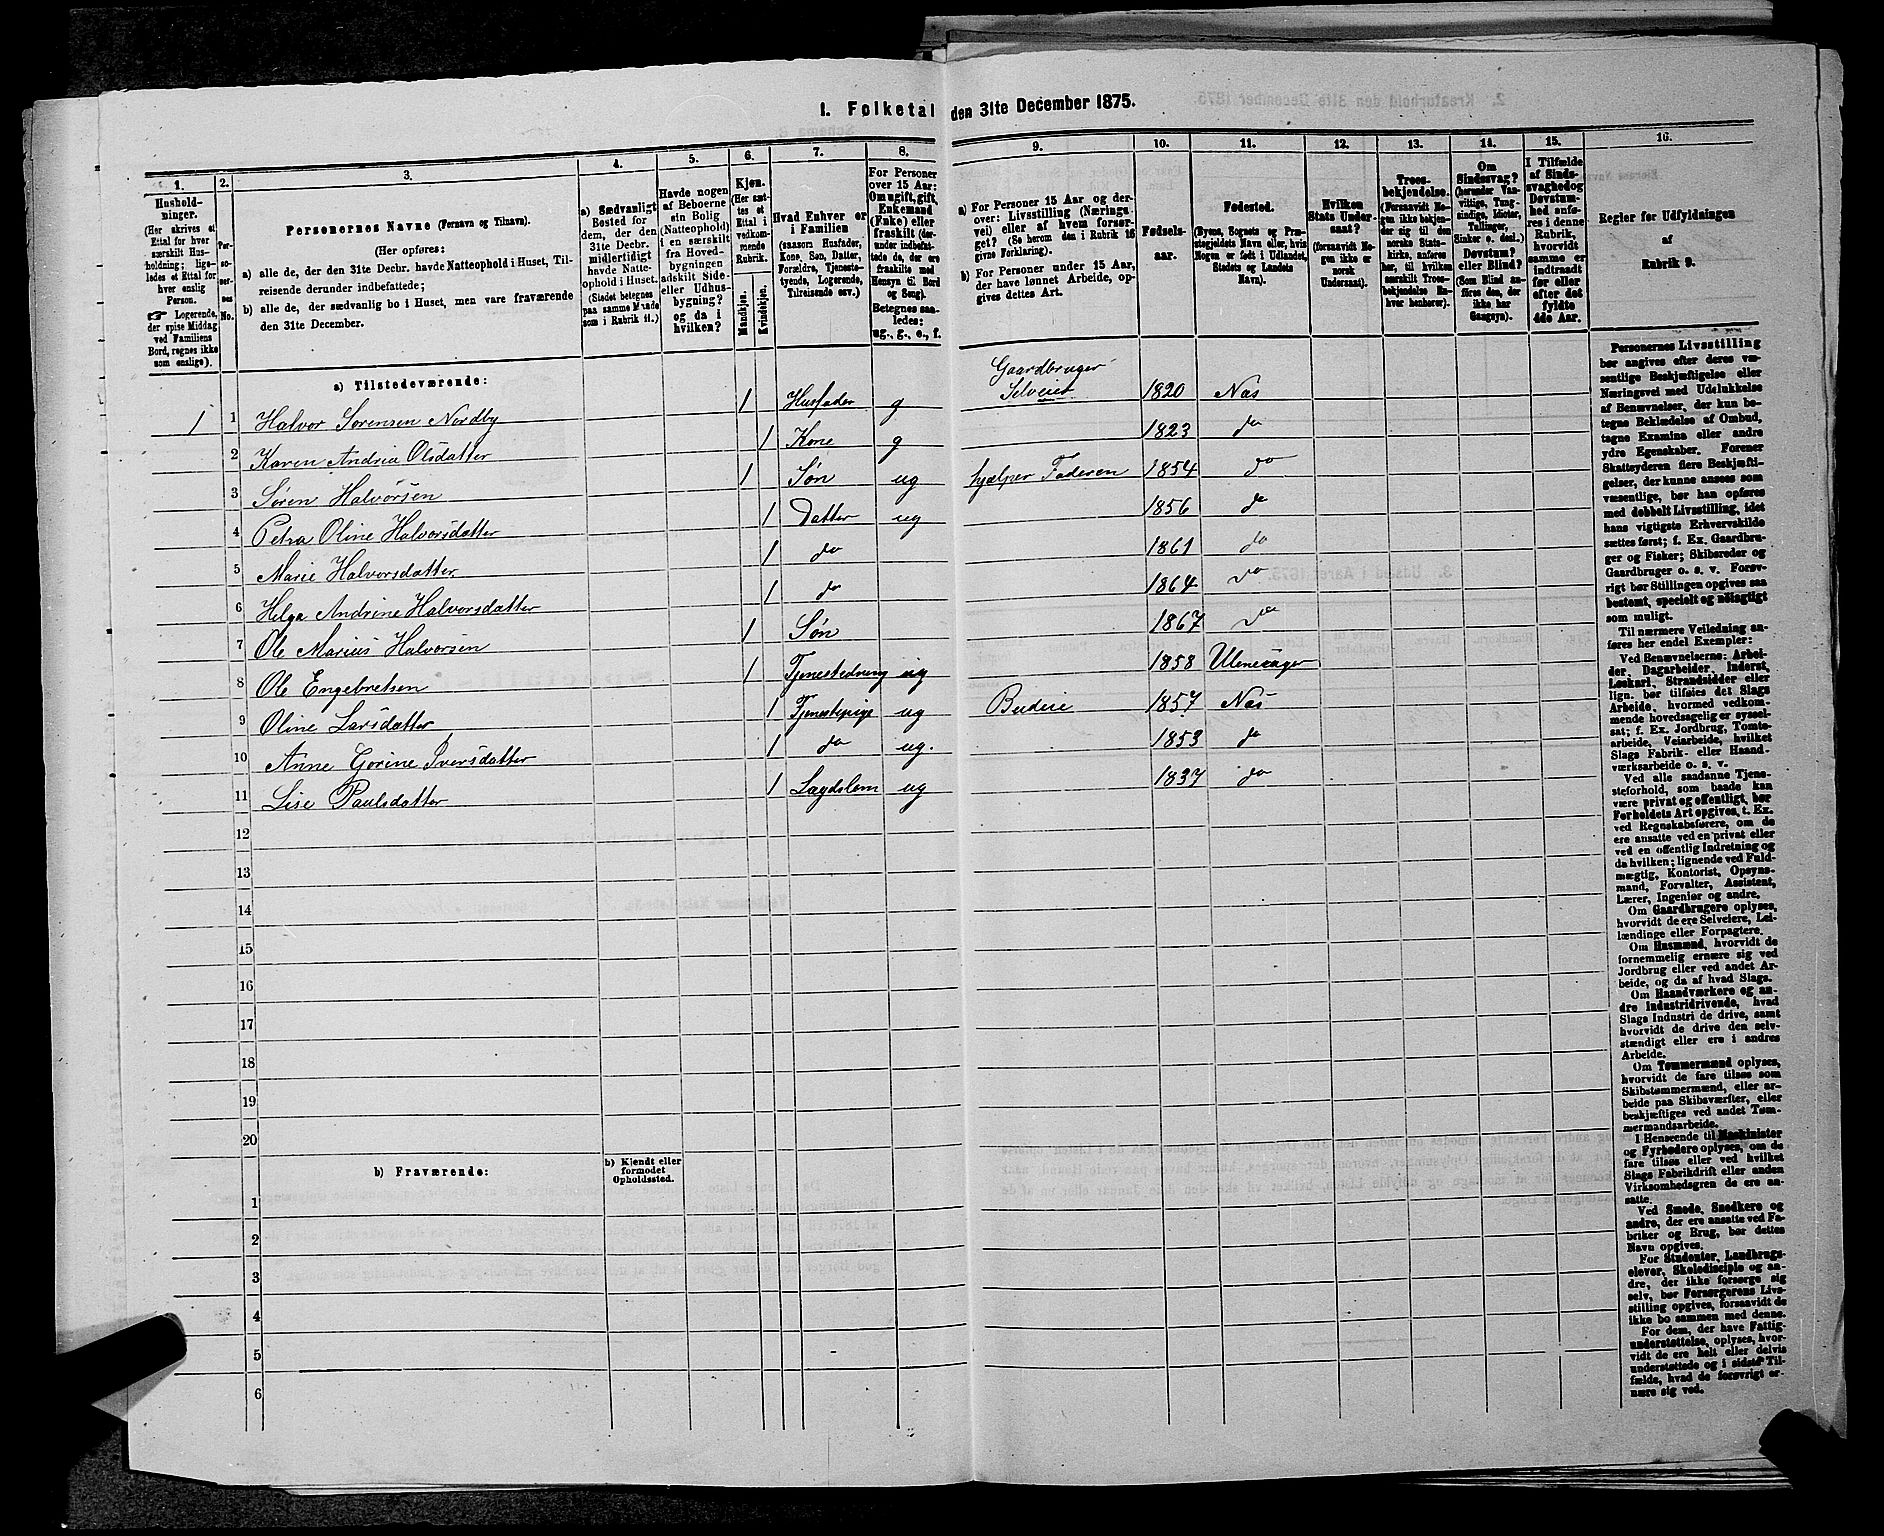 1. Folketal den 31te December 1875.
1. 2. 3. 4. 5. 6. 7. 8. 9. 10. 11. 12. 13. 14. 15. 16.
Hushold-
ninger.
(Her skrives et
Ettal for hver
særskilt Hus-
holdning; lige-
ledes et Ettal for
hver enslig
Person.
☞ Logerende,
der spise Middag
ved Familiens
Bord, regnes ikke
som enslige).
Per-
so-
ner-
nes
No.
Personernes Navne (Fornavn og Tilnavn).
(Her opføres:
a) alle de, der den 31te Decbr. havde Natteophold i Huset, Til-
reisende derunder indbefattede;
b) alle de, der sædvanlig bo i Huset, men vare fraværende
den 31te December.
a) Sædvanligt
Bosted for
dem, der den
31te Decbr.
midlertidigt
havde Natte-
ophold i Huset.
(Stedet betegnes
paa samme Maade
som i Rubrik 11.)
Havde nogen
af Beboerne
sin Bolig
(Natteophold)
i en særskilt
fra Hoved-
bygningen
adskilt Side-
eller Udhus-
bygning?
og da i
hvilken?
Kjøn.
(Her sæt-
tes et
Ettal i
vedkom-
mende
Rubrik.
Mandkjøn.
Kvindekjøn.
Hvad Enhver er
i Familien
(saasom Husfader,
Kone, Søn, Datter,
Forældre, Tjeneste-
tyende, Logerende,
Tilreisende osv.)
For Personer
over 15 Aar:
Om ugift, gift,
Enkemand
(Enke) eller
fraskilt (der-
under indbefat-
tede de, der ere
fraskilte med
Hensyn til Bord
og Seng).
Betegnes saa-
ledes:
ug., g., e., f.
a) For Personer 15 Aar og der-
over: Livsstilling (Nærings-
vei) eller af hvem forsør-
get? (Se herom den i Rubrik 16
givne Forklaring).
b) For Personer under 15 Aar,
der have lønnet Arbeide, op-
gives dettes Art.
Fødsels-
aar.
Fødested.
(Byens, Sognets og Præ-
stegjeldets Navn eller, hvis
Nogen er født i Udlandet,
Stedets og Landets
Navn).
Hvilken
Stats Under-
saat?
(forsaavidt No-
gen ikke er
norsk
Undersaat).
Troes-
bekjendelse.
(Forsaavidt No-
gen ikke bekjen-
der sig til den
norske Stats-
kirke, anføres
her, til hvilken
særskilt Troes-
bekjendelse En-
hver henhører).
Om
Sindssvag?
(herunder Van-
vittige, Tung-
sindige, Idioter,
Tullinger,
Sinker o. desl.)
Døvstum?
eller Blind?
(Som Blind an-
føres den, der
ikke har
Gangsyn).
I Tilfælde
af Sinds-
svaghed og
Døvstum-
hed anfø-
res i denne
Rubrik,
hvorvidt
samme er
indtraadt
før eller
efter det
fyldte
4de Aar.
Regler for Udfyldningen
af
Rubrik 9.
a) Tilstedeværende:
1 1 Halvor Sørensen Nordby 1 Husfader g Gaardbruger Selveier 1820 Næs
2 Karen Andria Olsdatter 1 Kone g 1823 do
3 Søren Halvorsen 1 Søn ug hjælper Faderen 1854 do
4 Petra Oline Halvorsdatter 1 Datter ug 1856 do
5 Marie Halvorsdatter 1 do 1861 do
6 Helga Andrine Halvorsdatter 1 do 1864 do
7 Ole Marius Halvorsen 1 Søn 1867 do
8 Ole Engebretsen 1 Tjenestedreng ug 1858 Ullensager
9 Oline Larsdatter 1 Tjenestepige ug Budeie 1857 Næs
10 Anne Gorine Iversdatter 1 do ug. 1853 do
11 Lise Paulsdatter 1 Lægdslem ug 1837 do
12
13
14
15
16
17
18
19
20
b) Fraværende:
b) Kjendt eller
formodet
Opholdssted.
1
2
3
4
5
6
Personernes Livsstilling
bør angives efter deres væ-
sentlige Beskjæftigelse eller
Næringsvei med Udelukkelse
af Benævnelser, der kun be-
tegne Beklædelse af Ombud,
tagne Examina eller andre
ydre Egenskaber. Forener
Skatteyderen flere Beskjæfti-
gelser, der kunne ansees som
væsentlige, bør han opføres
med dobbelt Livsstilling, idet
hans vigtigste Erhvervskilde
sættes først; f. Ex. Gaardbru-
ger og Fisker; Skibsreder og
Gaardbruger o. s. v. Forøv-
rigt bør Stillingen opgives saa
bestemt, specielt og nøiagtigt
som muligt.
Til nærmere Veiledning an-
føres her endel Exempler:
Ved Benævnelserne: Arbei-
der, Dagarbeider, Inderst,
Løskarl, Strandsidder eller
lign. bør tilføies det Slags
Arbeide, hvormed vedkom-
mende hovedsagelig er syssel-
sat; f. Ex. Jordbrug, Tomte-
arbeide, Veiarbeide, hvilket
Slags Fabrik- eller Haand-
værksarbeide o. s. v.
Ved alle saadanne Tjene-
steforhold, som baade kan
være privat og offentligt, bør
Forholdets Art opgives, t. Ex.
ved Regnskabsførere, om de
ere ansatte ved en privat eller
ved en offentlig Indretning og
da hvilken; lignende ved Fuld-
mægtig, Kontorist, Opsyns-
mand, Forvalter, Assistent,
Lærer, Ingeniør og andre.
Om Gaardbrugere oplyses,
hvorvidt de ere Selveiere, Lei-
lændinge eller Forpagtere.
Om Husmænd, hvorvidt de
fornemmelig ernære sig ved
Jordbrug eller ved andet Ar-
beide, og da af hvad Slags.
Om Haandværkere og an-
dre Industridrivende, hvad
Slags Industri de drive, samt
hvorvidt de drive den selv-
stændigt eller ere i andres
Arbeide.
Om Tømmermænd oplyses,
hvorvidt de fare tilsøs som
Skibstømmermænd, eller ar-
beide paa Skibsværfter, eller
beskjæftiges ved andet Tøm-
mermandsarbeide.
I Henseende til Maskinister
og Fyrbødere oplyses, om de
fare tilsøs eller ved hvilket
Slags Fabrikdrift eller anden
Virksomhedsgren de ere an-
satte.
Ved Smede, Snedkere og
andre, der ere ansatte ved Fa-
briker og Brug, bør dettes
Navn opgives.
For Studenter, Landbrugs-
elever, Skoledisciple og an-
dre, der ikke forsørge sig
selv, bør Forsørgerens Livs-
stilling opgives, forsaavidt de
ikke bo sammen med denne.
For dem, der have Fattig-
understøttelse, oplyses, hvor-
vidt de ere helt eller delvis
understøttede og i sidste Til-
fælde, hvad de forøvrigt er-
nære sig ved.